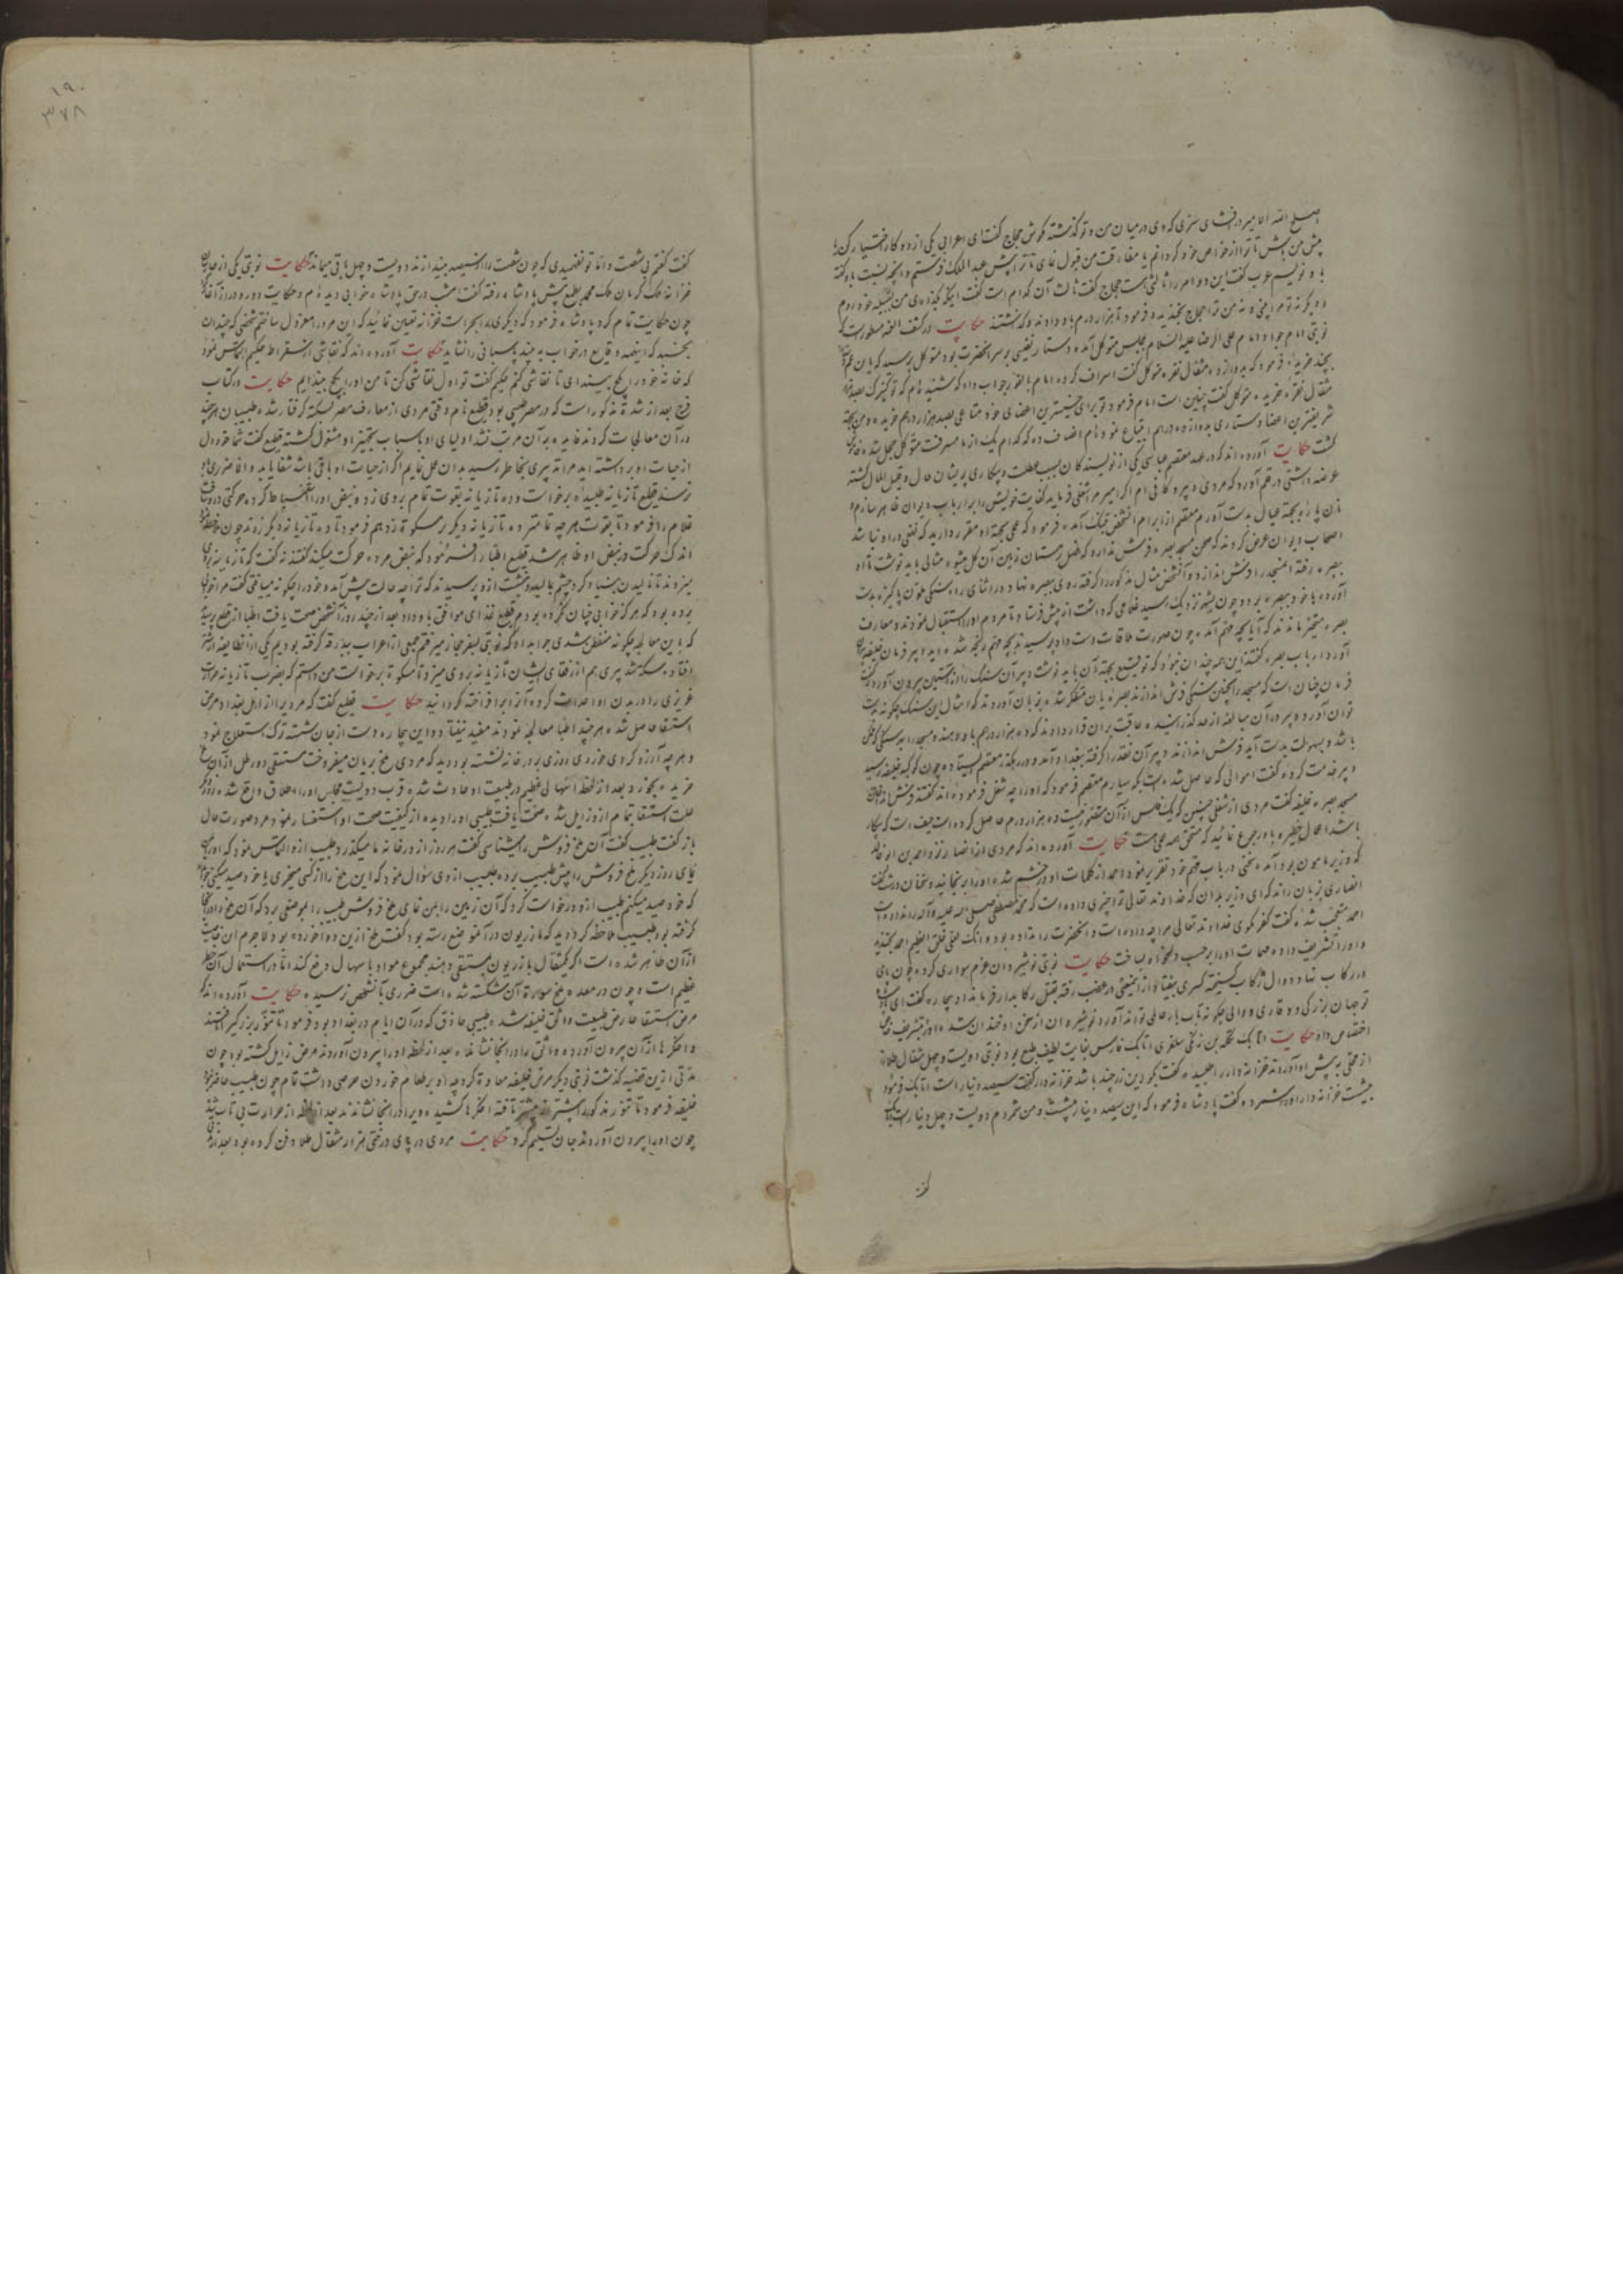 اصلح الله الامیر در افشای سرّی که وی در میان من و تو گذشته مکوش حجاج گفت ای اعرابی یکی از دو کار اختیار کن یا
پیش من باش تا ترا از خواص خود گردانم یا مفارقت من قبول نمای تا ترا پیش عبدالملک فرستم و آنچه
با و نویسم عرب گفت این دو امر را ثالثی هست حجاج گفت ثالث آن کدام است گفت اینکه بگذاری من بقبیله خود روم
و دیگر نه تو مرا بینی و نه من ترا حجاج بخندید و فرمود تا هزار درم باو دادند و گذاشتند حکایت در کشف الغمه مسطورست که
نوبتی امام جواد امام علی الرضا علیه السلام بمجلس متوکل آمد دستار نفیسی بر سر آنحضرت بود متوکل پرسید که
بچند خریده فرمود که متوکل گفت اسراف کرده امام جواب داد که شنیده ام که تو کنیزک
مثقال نقره خریده متوکل گفت چنین است امام فرمود تو برای خسیسترین اعضای خود متاعی بصد هزار درهم خریده و من بجهة
شریفترین اعضا دستاری ابتیاع نموده ام انصاف ده که کدام یک از ما مسرفست متوکل خجل شد
گشت حکایت آورده اند که در عهد معتصم عباسی یکی از نویسندگان بسبب عطلت و بیکاری پریشان حال و قلیل المال گشته
عرضه داشتی در قلم آورد که مردی ام اگر امیر مرا شغلی فرماید کفایت خویش را بر ارباب دیوان ظاهر سازم و
نان پاره بجهة عیال بدست آورم معتصم از ابرام آنشخص بتنگ آمده فرمود که عملی بجهة او مقرر دارید که نفعی در او نباشد
اصحاب دیوان عرض کردند که صحن مسجد بصره فرش ندارد که فصل زمستان زمین آن گل میشود مثالی باید نوشت تا او
ببصره رفته آنمسجد را فرش اندازد و آنشخص مثال مذکور را گرفته روی ببصره نهاد و در اثنای راه سنگی ملون پاکیزه بدست
آورده با خود ببصره برد و چون بشهر نزدیک رسید غلامی که داشت از پیش فرستاد تا مردم او را استقبال نمودند و معارف
بصره متحیر ماندند که آیا بچه مهم آمده چون صورت ملاقات دست داد پرسیدند بچه مهم رنجه شده اید پیر فرمان خلیفه
آورد ارباب بصره گفتند این همه چندان نبود که توقیع بجهة آن باید نوشت و پیر آن سنگ را از آستین بیرون آورد گفت
فرمان چنان است که مسجد را بچنین سنگی فرش اندازند بصریان متفکر شده بزبان آوردند که امثال این سنگ چگونه بدست
توان آورد و پیر در آن مبالغه از حد گذرانیده عاقبت بران قرار دادند که ده هزار درهم باو دهند و مسجد را بسنگی که
باشد و بسهولت بدست آید فرش اندازند و پیر آن نقد را گرفته ببغداد آمد و در رهگذر معتصم بایستاد چون کوکبه خلیفه رسید
پیر خدمت کرده گفت اموالی که حاصل شده است بکه سپارم معتصم فرمود که او را چه شغل فرموده اند گفتند فرش انداختن
مسجد بصره خلیفه گفت مردی از شغلی چنین که یک فلس از آن متصور نیست ده هزار درم حاصل کرده است حیف است که بیکار
باشد اعمال خطیره باو رجوع نمائید که مستحق همه عملی هست حکایت آورده اند که مردی از انصار نزد احمد بن ابو خالد
که وزیر مامون بود آمده سخنی در باب مهم خود تقریر نمود احمد از کلمات او در خشم شده او را برنجانید و سخنان درشت گفت
انصاری بزبان راند که ای وزیر بدان که خداوند تعالی ترا چیزی داده است که محمد مصطفی صلی الله علیه و آله را نداده است
احمد متعجب شده گفت کفر مگوی خداوند تعالی مرا چه داده است و آنحضرت را نداده بود و انک لعلی خلق عظیم احمد بخندید
و او را تشریف داده مهمات او را بر حسب دلخواه بساخت حکایت نوبتی نوشیروان عزم سواری کرده چون پای
در رکاب نهاد دوال رکاب گسیخته کسری بیفتاد از اینمعنی در غضب رفته بقتل رکابدار فرمان داد بیچاره گفت ای
تو جهان بزرگی و وقاری دوالی چگونه تاب بار عالمی تواند آورد نوشیروان از سخن او خندان شده او را بتشریف خاص
اختصاص داد حکایت اتابک تکله بن زنگی سلغری اتابک فارس بغایت لطیف طبع بود نوبتی دویست و چهل مثقال طلا
از محلی به پیش او آوردند خزانه دار را طلبیده گفت بگو این زر چند باشد خزانه دار گفت سیصد دینار است اتابک فرمود
خزانه دار او را شمرده گفت پادشاه فرموده که این سیصد دینار هست و من شمردم دویست و چهل دینار است
گفت
۱۹۰
۳۷۸
گفت گفتم بی شصت و اما تو نفهمیدی که چون شصت را از سیصد بیندازند دویست و چهل باقی میماند حکایت نوبتی یکی از
خزانه ملک کرمان ملک محمد بطمع پیش پادشاه رفته گفت امشب در حق پادشاه خوابی دیده ام و حکایت دور و دراز آغاز
چون حکایت تمام کرد پادشاه فرمود که دیگری را بحراست خزانه تعیین نمائید که این مرد را معزول ساختم شخصی که چندان
بخسبد که اینهمه وقایع در خواب بیند پاسبانی را نشاید حکایت آورده اند که نقاشی از سقراط حکیم التماس نمود
که خانه خود را بگچ بیندای تا نقاشی کنم حکیم گفت تو اول نقاشی کن تا من او را بگچ بیندایم حکایت در کتاب
فرج بعد از شدة مذکور است که در مصر طبیبی بود قطیع نام وقتی مردی از معارف مصر بسکته گرفتار شده طبیبان هر چند
در آن معالجات کردند فایده بر آن مرتب نشد اولیای او باسباب تجهیز او مشغول گشته قطیع گفت شما خود دل
از حیات او برداشته اید مرا تدبیری بخاطر رسیده بدان عمل نمایم اگر از حیات او باقی باشد شفا یابد و الا ضرری
نرسد قطیع تازیانه طلبیده برخواست و ده تازیانه بقوت تمام بر وی زد و نبض او را احتیاط کرده حرکتی در
غلام را فرمود تا بقوت هر چه تمامتر ده تازیانه دیگر بر مسکوت زد هم فرمود تا ده تازیانه دیگر زدند چون
اندک حرکت در نبض او ظاهر شد قطیع اطبا را فرمود که نبض مرده حرکت میکند گفتند نه گفت که تازیانه
میزدند تا نالیدن بنیاد کرد چشم بمالید و بنشست ازو پرسیدند که ترا چه حالت پیش آمد و خود را چگونه مییافتی گفت مرا خوابی
برده بود که هرگز خوابی چنان نکرده بودم قطیع غذای موافق باو داد بعد از چند روز آنشخص صحت یافت اطبا از قطیع پرسیدند
که باین معالجه چگونه متفطن شدی جواب داد که نوبتی بسفر حجاز میرفتم جمعی از اعراب ببدرقه گرفته بودیم یکی از آنطایفه از شتر
افتاد سکته شد پیری هم از رفقای ایشان تازیانه بر وی میزد تا مسکوت برخواست من دانستم که بضرب تازیانه حرارت
غریزی را در بدن او احداث کرده آنرا برافراخته گردانید حکایت قطیع گفت که مردیرا از اهل بغداد مرض
استسقا حاصل شد هر چند اطبا معالجه نمودند مفید نیفتاد و این بیچاره دست از جان شسته ترک استعلاج نمود
و هر چه آرزو کردی خوردی روزی بر در خانه نشسته بود دید که مردی ملخ بریان میفروخت مستسقی دو رطل از آن
خریده بخورد بعد از لحظه اسهالی عظیم در طبیعت او حادث شده قرب دویست مجلس او را اطلاق واقع شد
علت استسقا بتمام ازو زایل شد صحت یافت طبیبی او را دیده از کیفیت صحت او استفسار نمود مرد صورت حال
باز گفت طبیب گفت آن ملخ فروش را میشناسی گفت هر روز از در خانه ما میگذرد طبیب ازو التماس نمود که او را بمن
نمای روز دیگر ملخ فروش را پیش طبیب برده طبیب ازوی سؤال نمود که این ملخ را از کسی میخری یا خود صید میکنی
که خود صید میکنم طبیب ازو درخواست کرد که آن زمین را بمن نمای ملخ فروش طبیب را بموضعی برد که آن ملخ را از آنجا
گرفته بود طبیب ملاحظه کرد دید که مازریون در آنموضع رسته بود گفت ملخ ازین دوا خورده بود لاجرم این خاصیت
از آن ظاهر شده است اگر یکمثقال مازریون بمستسقی دهند مجموع مواد باسهال دفع کند اما در استعمال آن خطر
عظیم است و چون در معده ملخ سورة آن شکسته شده است ضرری بآنشخص نرسید حکایت آورده اند که
مرض استسقا عارض طبیعت واثق خلیفه شد طبیبی حاذق که در آن ایام در بغداد بود فرمود تا تنور بزرگ میافروختند
و اخگرها از آن بیرون آورده واثق را در آنجا نشاندند بعد از لحظه او را بیرون آوردند مرض زایل گشته بود چون
مدتی ازین قضیه گذشت نوبتی دیگر مرض خلیفه معاودة کرد چه او بر طعام خوردن حرصی داشت تمام چون طبیب حاضر نبود
خلیفه فرمود تا تنور مذکور را بیشتر تافته اخگرها کشیده ویرا در آنجا نشاندند بعد از لحظه از حرارت بی تاب شد
چون او را بیرون آوردند جان تسلیم کرد حکایت مردی در پای درختی هزار مثقال طلا دفن کرده بود بعد از